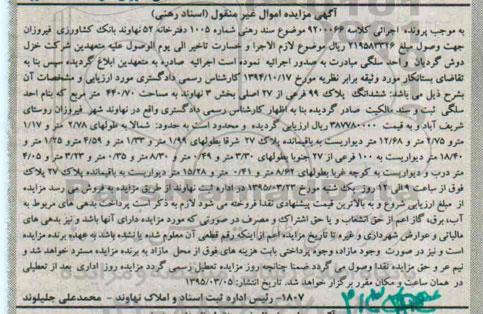 آگهی مزایده اموال غیر منقول (اسناد رهنی)
به موجب پرونده اجرائی کلاسه ۹۲۰۰۰۶۶ موضوع سند رهنی شماره ۱۰۰۵ دفترخانه ۵۲ نهاوند بانک کشاورزی فیروزان
جهت وصول مبلغ ۲۱۹۵۸۳۳۲۶ ریال موضوع لازم الاجرا و خسارت تاخیر الی یوم الوصول علیه متعهدین شرکت خزل
دوش گردیان و احد سلگی مبادرت به صدور اجرائیه نموده است اجرائیه صادره به متعهدین ابلاغ گردیده سپس بنا به
تقاضای بستانکار مورد وثیقه برابر نظریه مورخ ۱۳۹۴/۱۰/۱۷ کارشناس رسمی دادگستری مورد ارزیابی و مشخصات آن
بشرح ذیل می باشد: ششدانگ پلاک ۹۹ فرعی از ۲۷ اصلی بخش ۳ نهاوند به مساحت ۴۴۰/۷۰ متر مربع که بنام احد
سلگی ثبت و سند مالکیت صادر گردیده بنا به اظهار کارشناس رسمی دادگستری واقع در نهاوند شهر فیروزان روستای
شریف آباد و به قیمت ۳۸۷۷۸۰۰۰۰ ریال ارزیابی گردیده و محدود است به حدود: شمالا به طولهای ۲/۷۸ متر و ۱/۱۷
مترو ۲/۷۵ متر و ۱۲/۶۸ متر دیواریست به باقیمانده پلاک ۲۷ شرقا بطولهای ۱/۹۹ متر و ۱/۳۳ متر و ۴/۵۹ متر و ۱/۲۵ متر و
۱۸/۴۰ متر دیواریست به ۱۰۰ فرعی از ۲۷ جنوبا بطولهای ۳/۳۰ متر و ۰/۴۹ متر و ۸/۳۰ متر و ۰/۳۵ متر و ۳/۲۳ متر و ۴/۰۵
متر درب و دیواریست به کوچه غربا بطولهای ۸/۶۲ متر و ۰/۴۱ متر و ۱۵/۲۸ متر دیواریست به باقیمانده پلاک ۲۷ پلاک
فوق از ساعت ۹ الی ۱۲ روز یک شنبه مورخ ۱۳۹۵/۰۳/۲۳ در اداره ثبت نهاوند از طریق مزایده به فروش می رسد مزایده
از مبلغ ارزیابی شروع و به بالاترین قیمت پیشنهادی نقدا فروخته می شود لازم به ذکر است پرداخت بدهی های مربوط به
آب، برق، گاز اعم از حق انشعاب و یا حق اشتراک و مصرف در صورتی که مورد مزایده دارای آنها باشد و نیز بدهی های
مالیاتی و عوارض شهرداری و غیره تا تاریخ مزایده اعم از اینکه رقم قطعی آن معلوم شده یا نشده باشد به عهده برنده مزایده
است و نیز در صورت وجود مازاد، وجوه پرداختی بابت هزینه های فوق از محل مازاد به برنده مزایده مسترد خواهد شد و
نیم عر و حق مزایده نقدا وصول می گردد ضمنا چنانچه روز مزایده تعطیل رسمی گردد مزایده روز اداری بعد از تعطیلی
در همان ساعت و مکان مقرر برگزار خواهد شد. تاریخ انتشار: ۱۳۹۵/۰۳/۰۵
۱۸۰۷- رئیس اداره ثبت اسناد و املاک نهاوند - محمدعلی جلیلوند